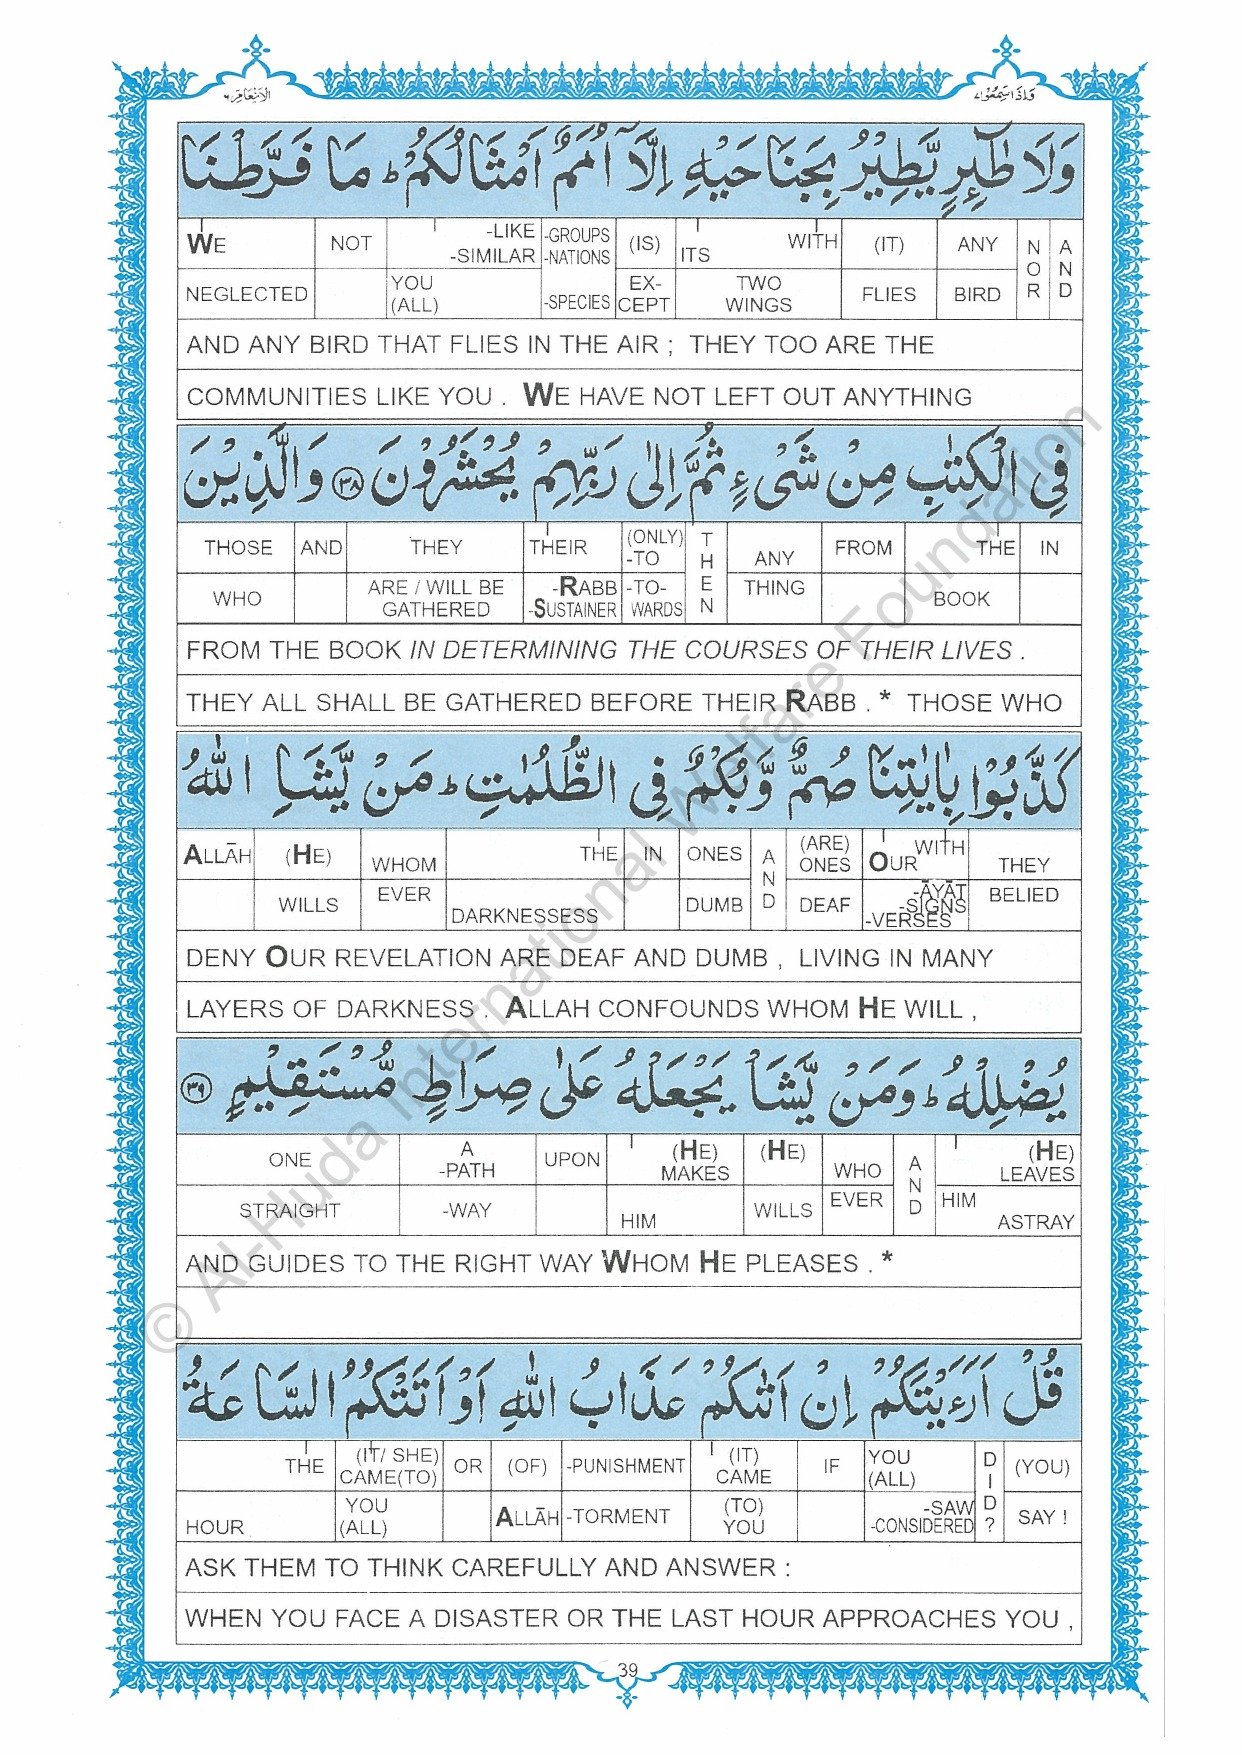 الانعام ٦
واذا سمعوا ٧
وَلَا طٰٓئِرٍ يَّطِيْرُ بِجَنَاحَيْهِ اِلَّاۤ اُمَمٌ اَمْثَالُكُمْ ؕ مَا فَرَّطْنَا
WE NOT -LIKE -SIMILAR -GROUPS -NATIONS (IS) ITS WITH (IT) ANY NOR AND
NEGLECTED YOU (ALL) -SPECIES EX-CEPT TWO WINGS FLIES BIRD
AND ANY BIRD THAT FLIES IN THE AIR ; THEY TOO ARE THE
COMMUNITIES LIKE YOU . WE HAVE NOT LEFT OUT ANYTHING
فِي الْكِتٰبِ مِنْ شَيْءٍ ثُمَّ اِلٰى رَبِّهِمْ يُحْشَرُوْنَ ﴿٣٨﴾ وَالَّذِيْنَ
THOSE AND THEY THEIR (ONLY) -TO THEN ANY FROM THE IN
WHO ARE / WILL BE GATHERED -RABB -SUSTAINER -TO-WARDS THING BOOK
FROM THE BOOK IN DETERMINING THE COURSES OF THEIR LIVES .
THEY ALL SHALL BE GATHERED BEFORE THEIR RABB . * THOSE WHO
كَذَّبُوْا بِاٰيٰتِنَا صُمٌّ وَّبُكْمٌ فِي الظُّلُمٰتِ ؕ مَنْ يَّشَاِ اللّٰهُ
ALLĀH (HE) WHOM THE IN ONES AND (ARE) ONES OUR WITH THEY
WILLS EVER DARKNESSESS DUMB DEAF -ĀYĀT -SIGNS -VERSES BELIED
DENY OUR REVELATION ARE DEAF AND DUMB , LIVING IN MANY
LAYERS OF DARKNESS . ALLAH CONFOUNDS WHOM HE WILL ,
يُضْلِلْهُ ؕ وَمَنْ يَّشَاْ يَجْعَلْهُ عَلٰى صِرَاطٍ مُّسْتَقِيْمٍ ﴿٣٩﴾
ONE A -PATH UPON (HE) MAKES (HE) WHO AND (HE) LEAVES
STRAIGHT -WAY HIM WILLS EVER HIM ASTRAY
AND GUIDES TO THE RIGHT WAY WHOM HE PLEASES . *
قُلْ اَرَءَيْتَكُمْ اِنْ اَتٰىكُمْ عَذَابُ اللّٰهِ اَوْ اَتَتْكُمُ السَّاعَةُ
THE (IT/ SHE) CAME(TO) OR (OF) -PUNISHMENT (IT) CAME IF YOU (ALL) DID? (YOU)
HOUR YOU (ALL) ALLĀH -TORMENT (TO) YOU -SAW -CONSIDERED SAY !
ASK THEM TO THINK CAREFULLY AND ANSWER :
WHEN YOU FACE A DISASTER OR THE LAST HOUR APPROACHES YOU ,
39
© Al-Huda International Welfare Foundation